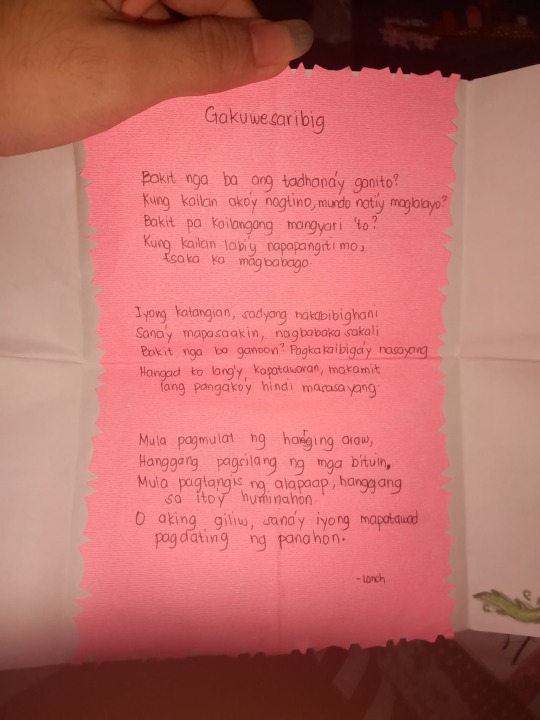 Gakuwesaribig
Bakit nga ba ang tadhana'y ganito?
Kung kailan ako'y nagtino, mundo nati'y maglalayo?
Bakit pa kailangang mangyari 'to?
Kung kailan labi'y napapangiti mo,
tsaka ka magbabago.
Iyong katangian, sadyang nakabibighani
Sana'y mapasaakin, nagbabaka sakali
Bakit nga ba ganoon? Pagkakaibiga'y nasayang
Hangad ko lang'y kapatawaran, makamit
lang pangako'y hindi masasayang
Mula pagmulat ng haring araw,
Hanggang pagsilang ng mga bituin.
Mula pagtangis ng alapaap, hanggang
sa ito'y huminahon
O aking giliw, sana'y iyong mapatawad
pagdating ng panahon.